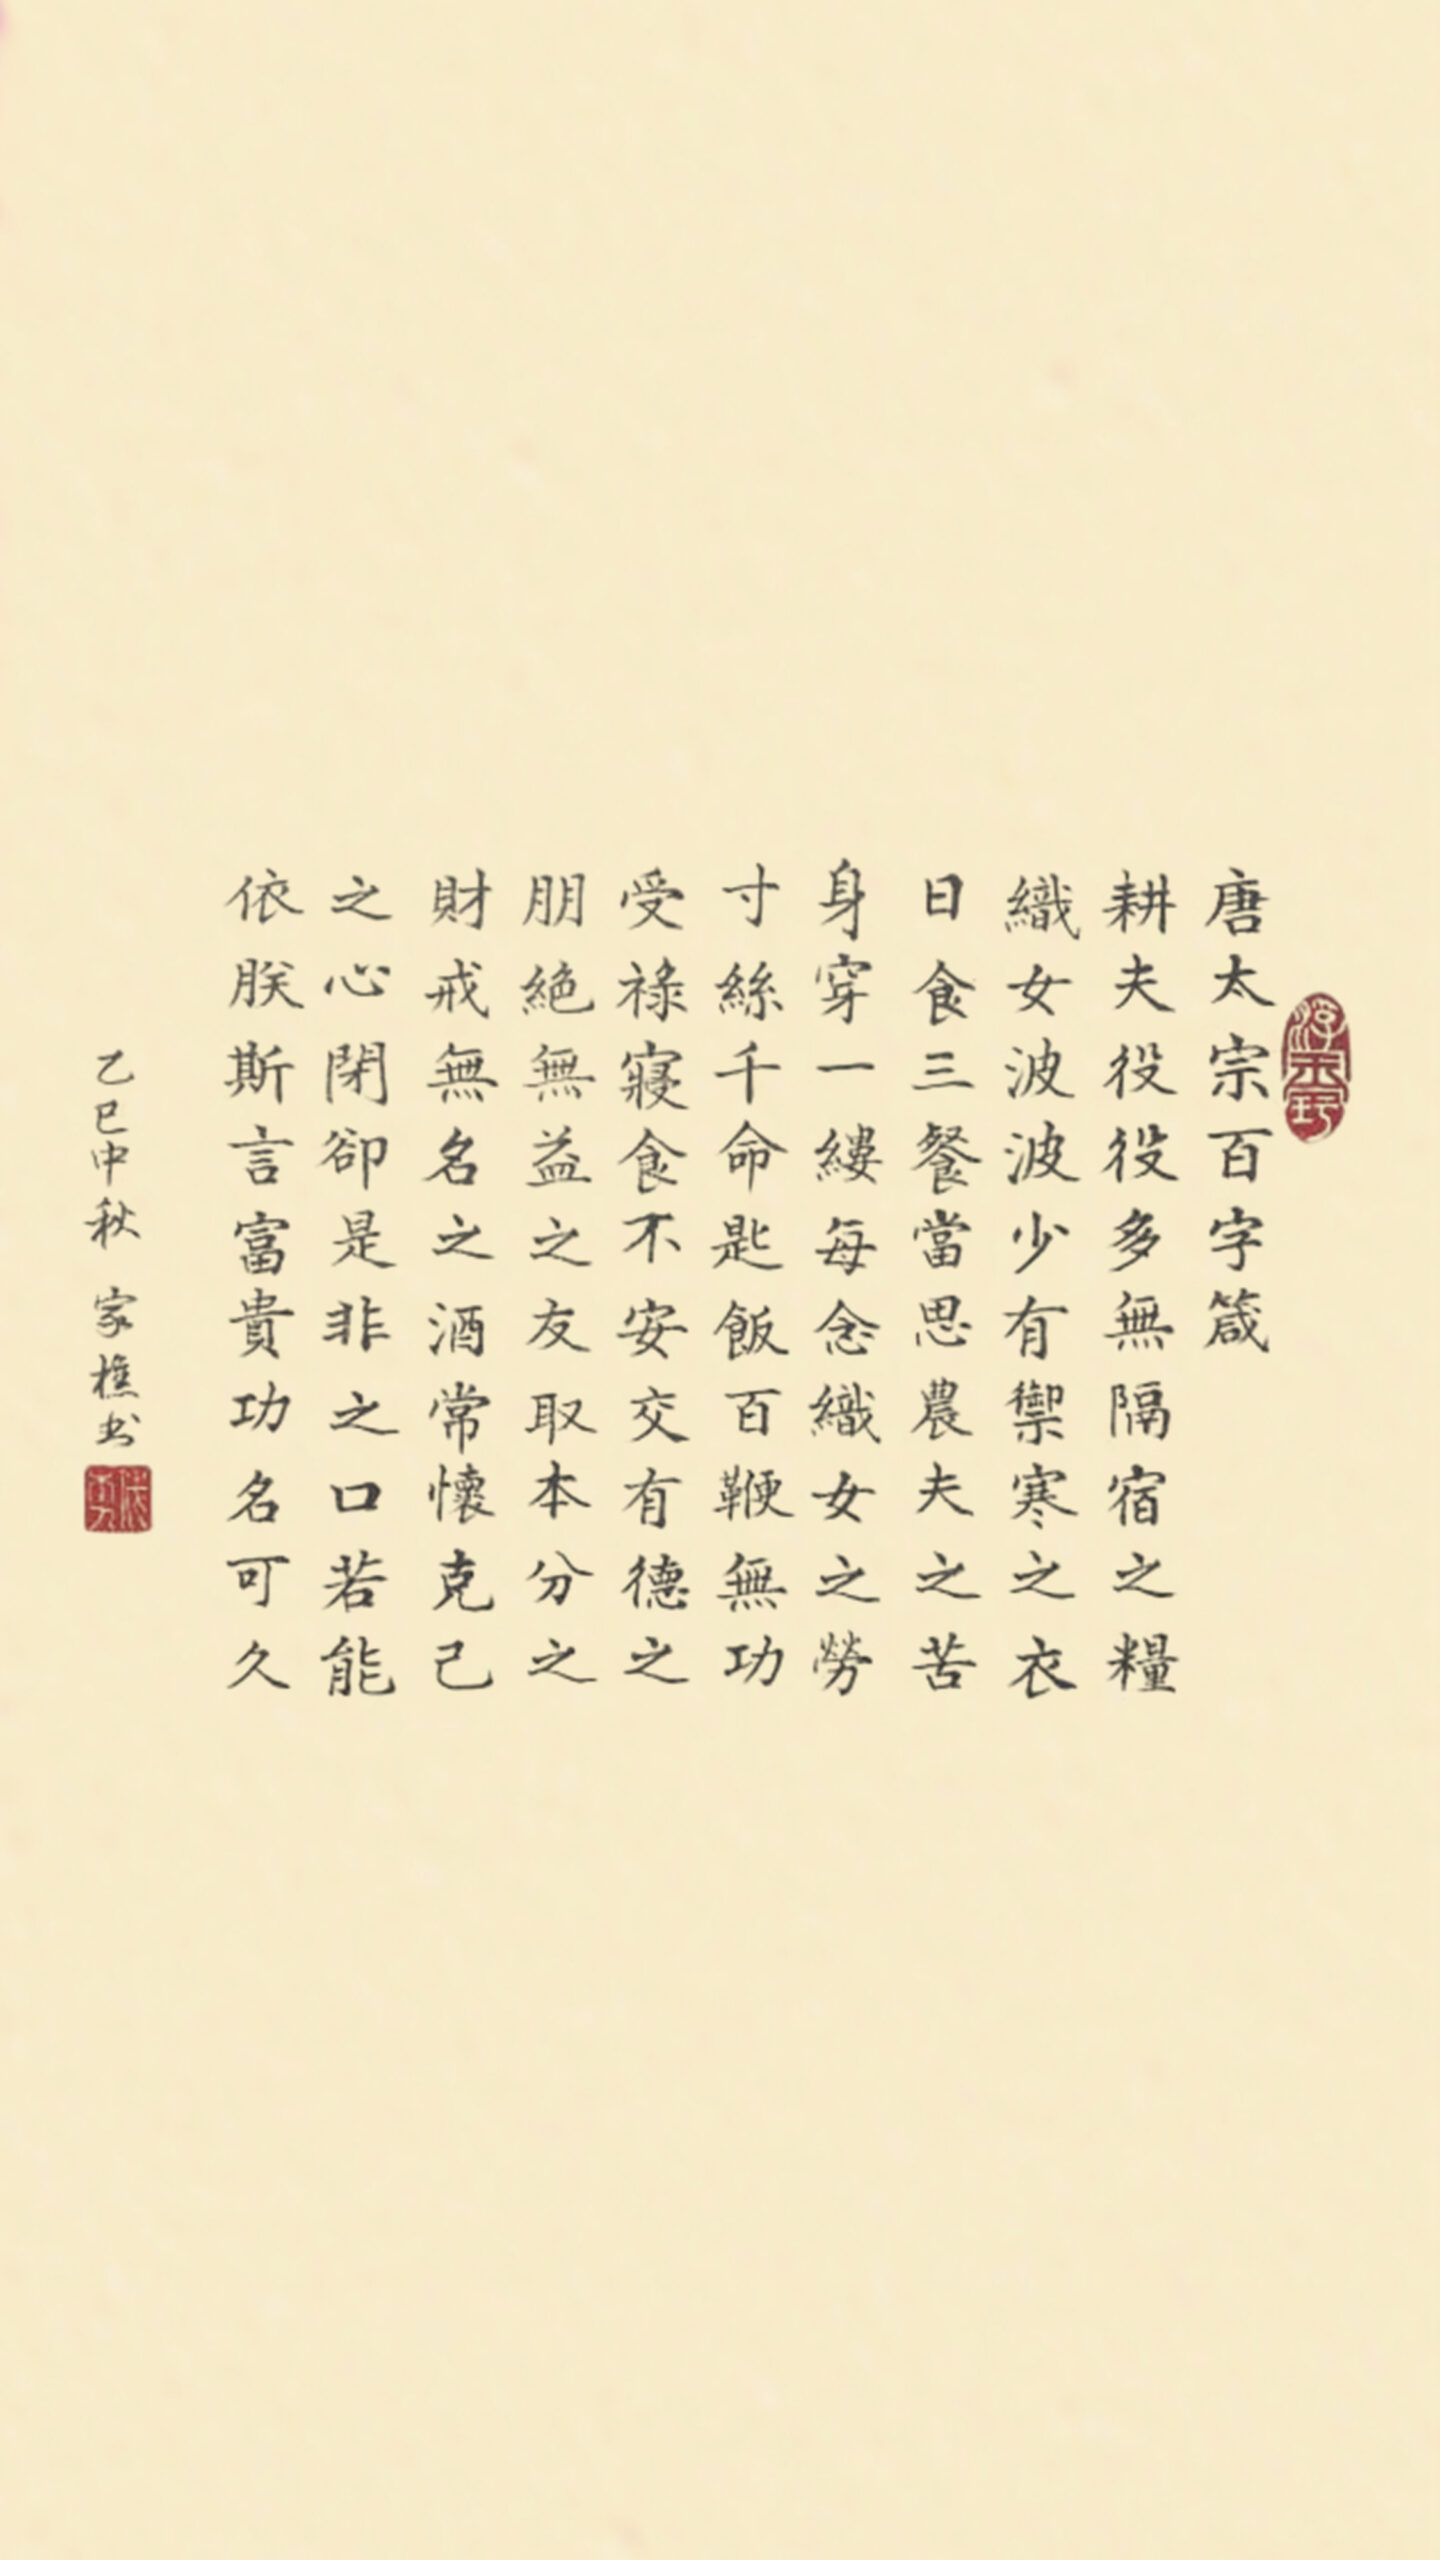 唐太宗百字箴
耕夫役役多無隔宿之糧
織女波波少有禦寒之衣
日食三餐當思農夫之苦
身穿一縷每念織女之勞
寸絲千命匙飯百鞭無功
受祿寢食不安交有德之
朋絕無益之友取本分之
財戒無名之酒常懷克己
之心閉卻是非之口若能
依朕斯言富貴功名可久
乙巳中秋 家樵书